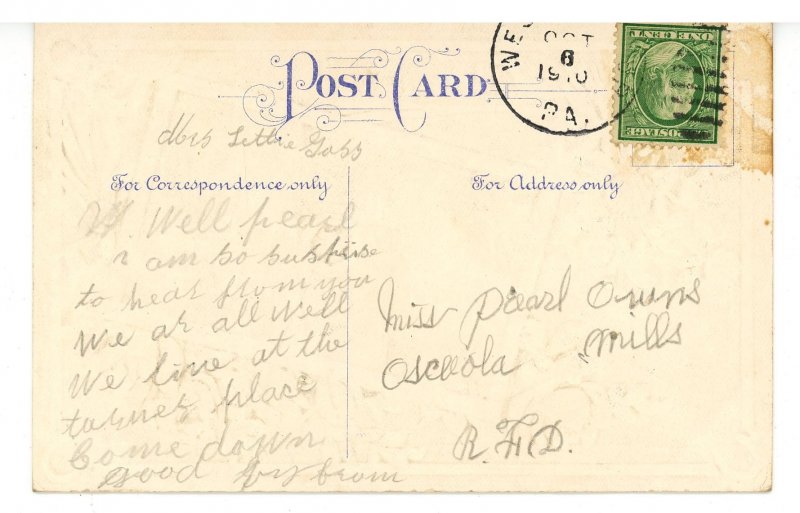 POST CARD
WES
OCT
6
1910
PA.
ONE CENT
POSTAGE
Mrs Lettie Goss
For Correspondence only
For Address only
Well pearl
I am so suprise
to hear from you
We ar all Well
We live at the
turner place
Come down
Good by from
Miss Pearl Owens
Osceola Mills
R.F.D.